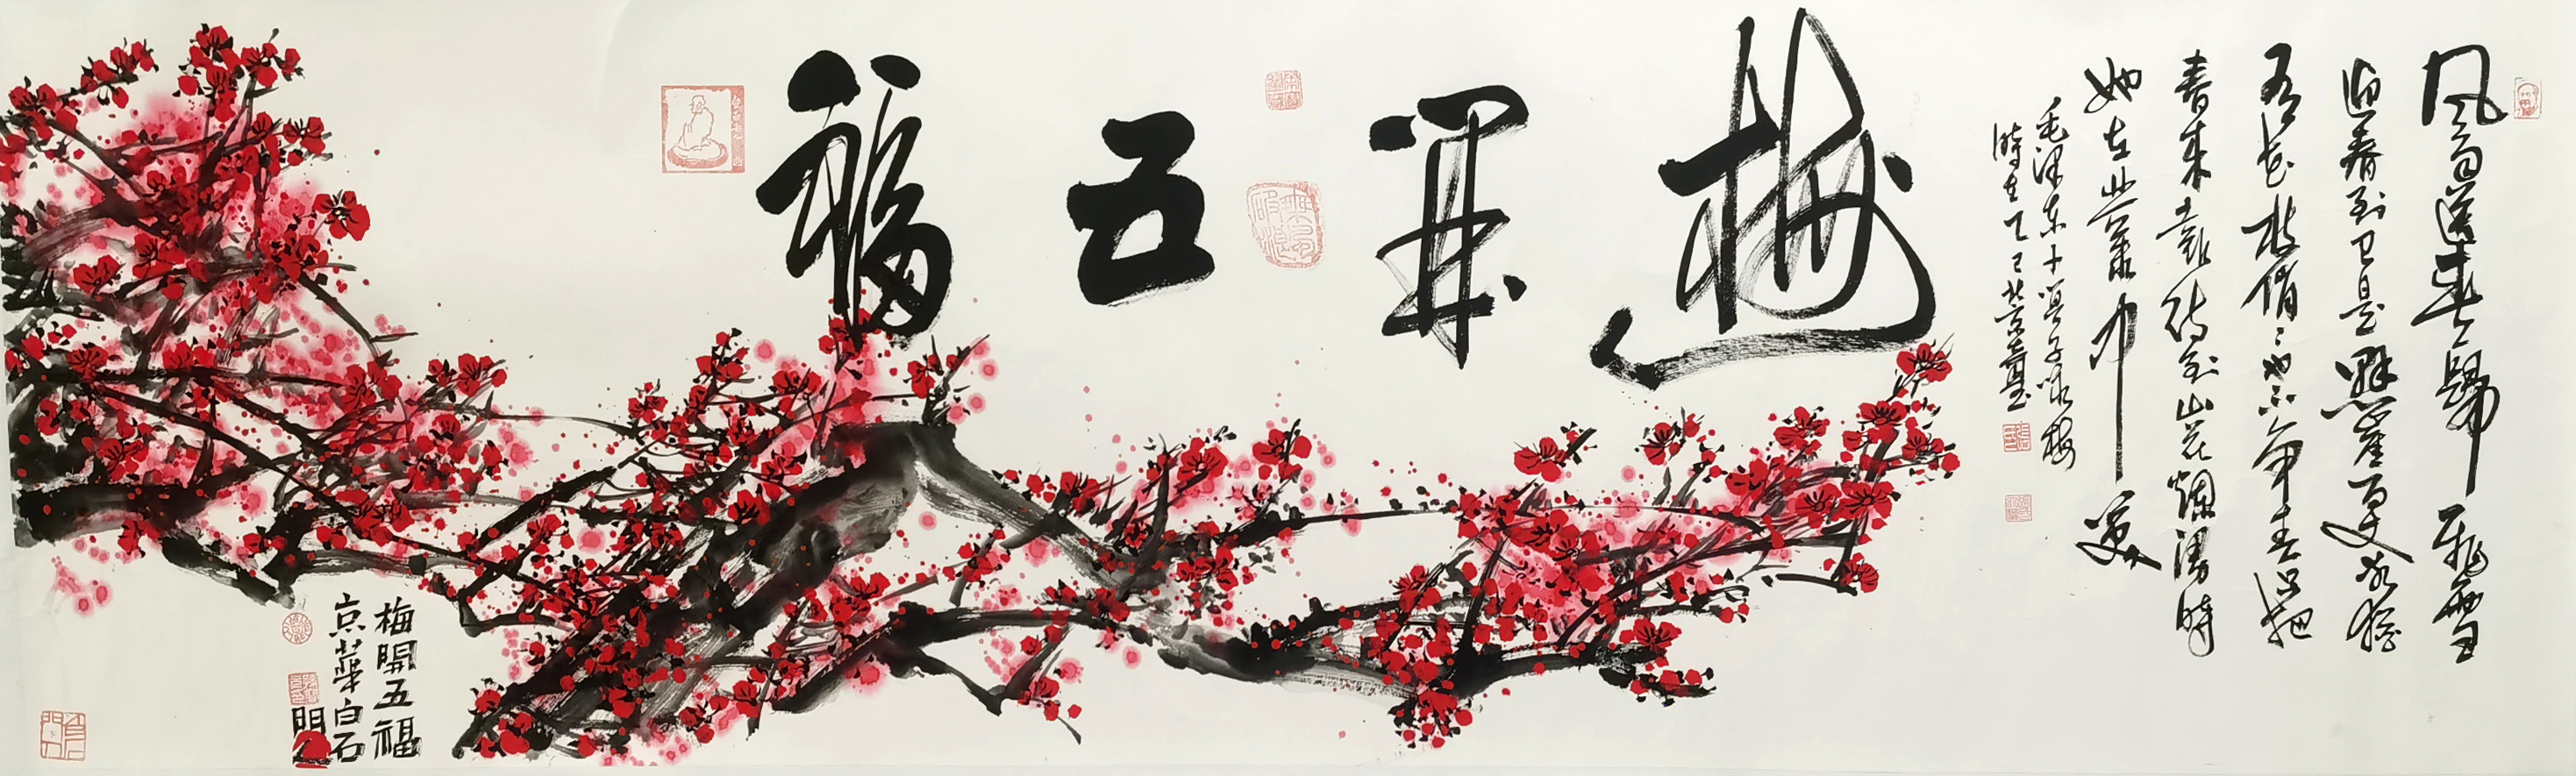 风雨送春歸飛雪
迎春到已是懸崖百丈冰猶
有花枝俏俏也不争春只把
春来報待到山花爛漫時
她在叢中笑
毛泽东卜算子咏梅
時在乙巳
梅開五福
梅開五福
京華白石
門人